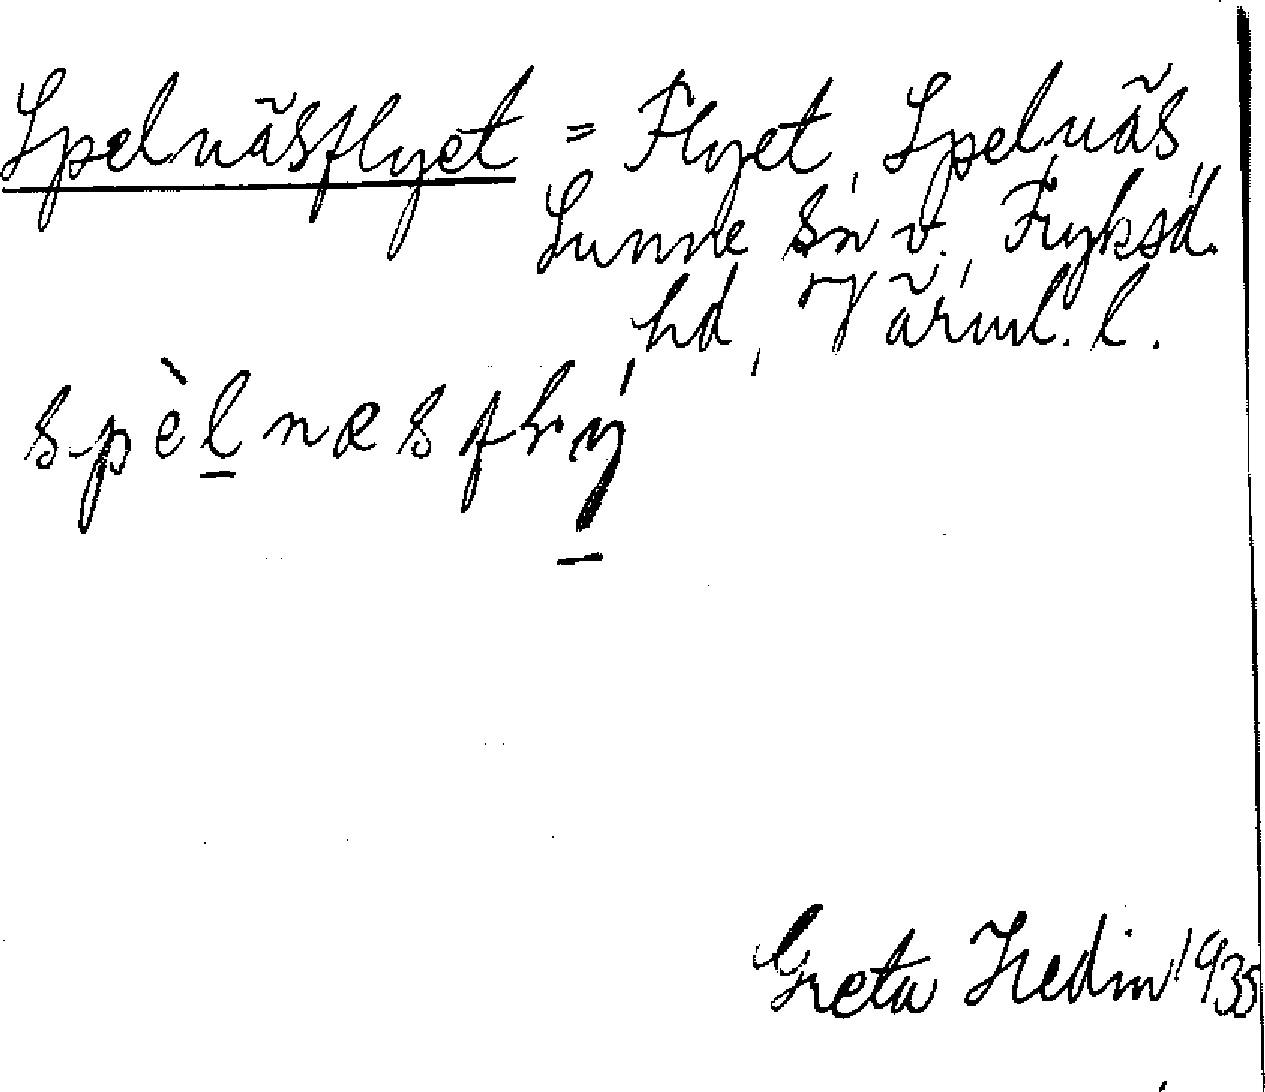 Spelnäsflyet = Flyet, Spelnäs,
Sunne sn v., Fryksd.
hd, Värml. l.
spèlnæsflý
Greta Hedin 1935